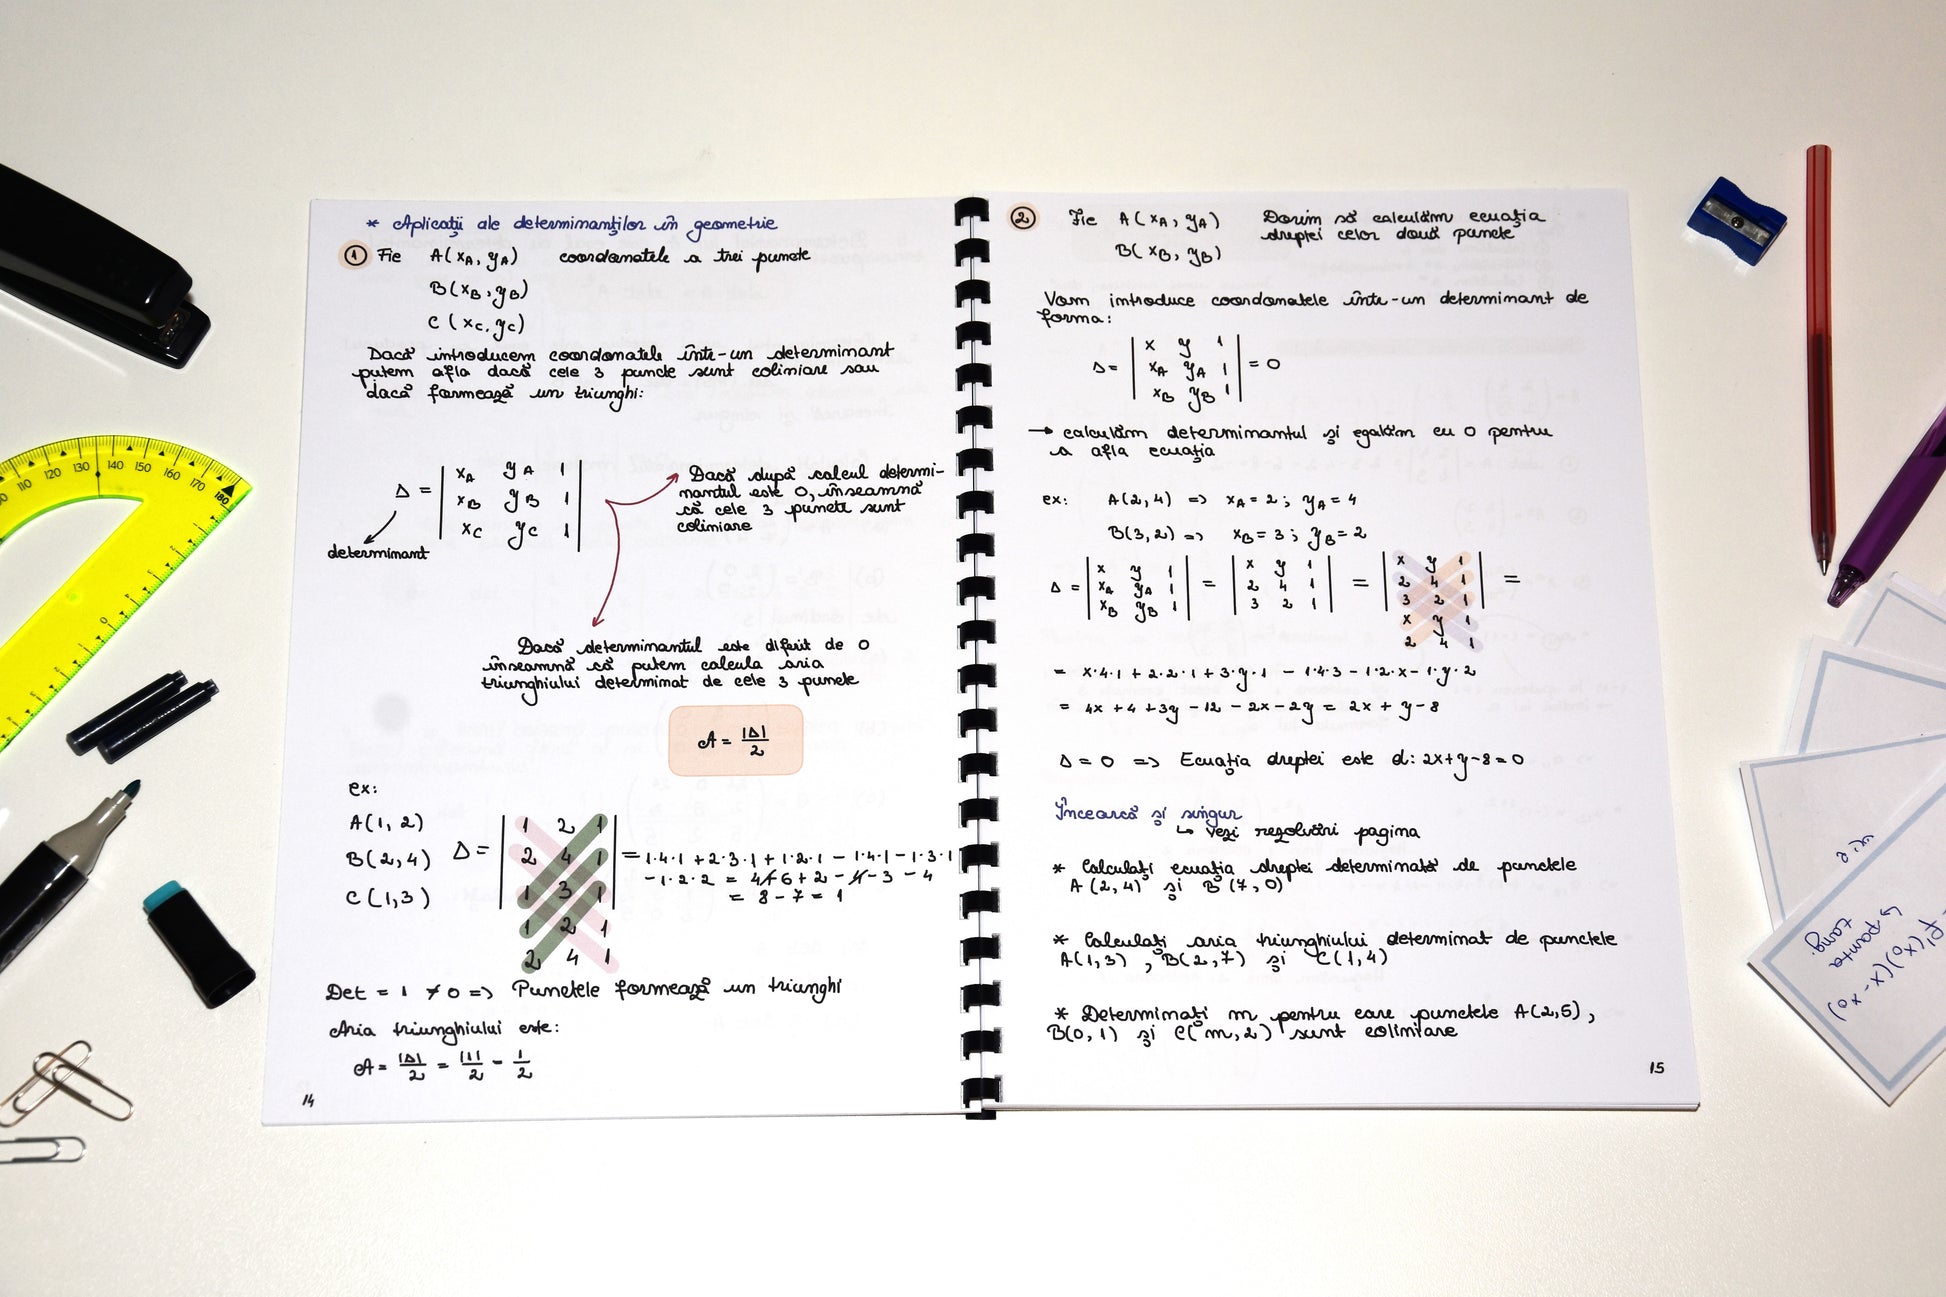 * Aplicații ale determinanților în geometrie
1 Fie A(xA, yA) coordonatele a trei puncte
B(xB, yB)
C(xC, yC)
Dacă introducem coordonatele într-un determinant
putem afla dacă cele 3 puncte sunt coliniare sau
dacă formează un triunghi:
Δ = | xA yA 1 |
| xB yB 1 |
| xC yC 1 |
determinant
Dacă după calcul determi-
nantul este 0, înseamnă
că cele 3 puncte sunt
coliniare
Dacă determinantul este diferit de 0
înseamnă că putem calcula aria
triunghiului determinat de cele 3 puncte
A = |Δ|/2
ex:
A(1, 2)
B(2, 4)
C(1, 3)
Δ = | 1 2 1 |
| 2 4 1 |
| 1 3 1 |
1 2 1
2 4 1
= 1·4·1 + 2·3·1 + 1·2·1 - 1·4·1 - 1·3·1
- 1·2·2 = 4 + 6 + 2 - 4 - 3 - 4
= 8 - 7 = 1
Det = 1 ≠ 0 => Punctele formează un triunghi
Aria triunghiului este:
A = |Δ|/2 = |1|/2 = 1/2
14
2 Fie A(xA, yA) Dorim să calculăm ecuația
dreptei celor două puncte
B(xB, yB)
Vom introduce coordonatele într-un determinant de
forma:
Δ = | x y 1 | = 0
| xA yA 1 |
| xB yB 1 |
→ calculăm determinantul și egalăm cu 0 pentru
a afla ecuația
ex: A(2, 4) => xA = 2; yA = 4
B(3, 2) => xB = 3; yB = 2
Δ = | x y 1 | = | x y 1 | = | x y 1 | =
| xA yA 1 | | 2 4 1 | | 2 4 1 |
| xB yB 1 | | 3 2 1 | | 3 2 1 |
x y 1
2 4 1
= x·4·1 + 2·2·1 + 3·y·1 - 1·4·3 - 1·2·x - 1·y·2
= 4x + 4 + 3y - 12 - 2x - 2y = 2x + y - 8
Δ = 0 => Ecuația dreptei este d: 2x + y - 8 = 0
Încearcă și singur
↳ vezi rezolvări pagina
* Calculați ecuația dreptei determinată de punctele
A(2, 4) și B(7, 0)
* Calculați aria triunghiului determinat de punctele
A(1, 3), B(2, 7) și C(1, 4)
* Determinați m pentru care punctele A(2,5),
B(0, 1) și C(m, 2) sunt coliniare
15
110 120 130 140 150 160 170 180
0
f'(x0)(x-x0)
↳ panta
tang.